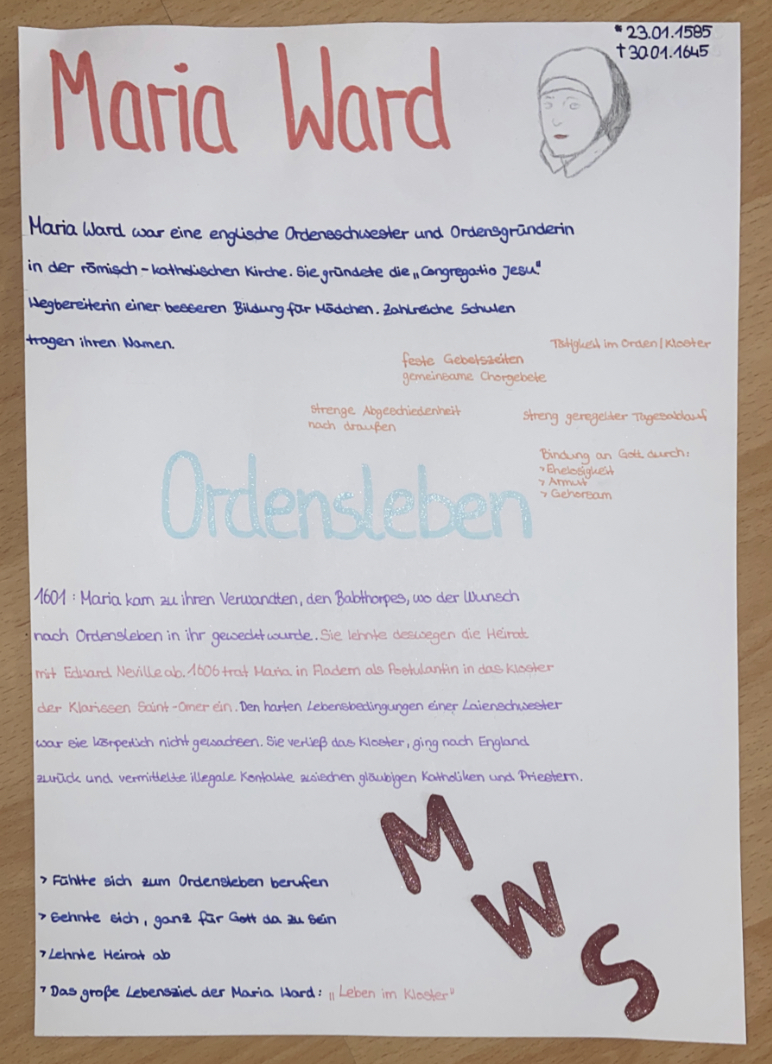 Maria Ward
* 23.01.1585
† 30.01.1645
Maria Ward war eine englische Ordensschwester und Ordensgründerin
in der römisch-katholischen Kirche. Sie gründete die „Congregatio Jesu"
Wegbereiterin einer besseren Bildung für Mädchen. Zahlreiche Schulen
tragen ihren Namen.
Tätigkeit im Orden/Kloster
feste Gebetszeiten
gemeinsame Chorgebete
strenge Abgeschiedenheit
nach draußen
Streng geregelter Tagesablauf
Bindung an Gott durch:
> Ehelosigkeit
> Armut
> Gehorsam
Ordensleben
1601: Maria kam zu ihren Verwandten, den Babthorpes, wo der Wunsch
nach Ordensleben in ihr geweckt wurde. Sie lehnte deswegen die Heirat
mit Eduard Neville ab. 1606 trat Maria in Fladern als Postulantin in das Kloster
der Klarissen Saint-Omer ein. Den harten Lebensbedingungen einer Laienschwester
war sie körperlich nicht gewachsen. Sie verließ das Kloster, ging nach England
zurück und vermittelte illegale Kontakte zwischen gläubigen Katholiken und Priestern.
> Fühlte sich zum Ordensleben berufen
> Sehnte sich, ganz für Gott da zu sein
> Lehnte Heirat ab
> Das große Lebensziel der Maria Ward: „Leben im Kloster"
M
W
S